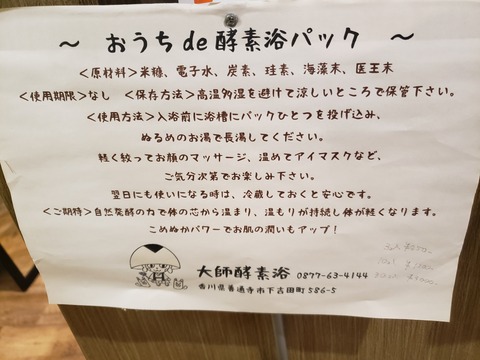 ～ おうち de 酵素浴パック ～
＜原材料＞米糠、電子水、炭素、珪素、海藻末、医王末
＜使用期限＞なし ＜保存方法＞高温多湿を避けて涼しいところで保管下さい。
＜使用方法＞入浴前に浴槽にパックひとつを投げ込み、
ぬるめのお湯で長湯してください。
軽く絞ってお顔のマッサージ、温めてアイマスクなど、
ご気分次第でお楽しみ下さい。
翌日にも使いになる時は、冷蔵しておくと安心です。
＜ご期待＞自然発酵の力で体の芯から温まり、温もりが持続し体が軽くなります。
こめぬかパワーでお肌の潤いもアップ！
大師酵素浴 0877-63-4144
香川県善通寺市下吉田町 586-5